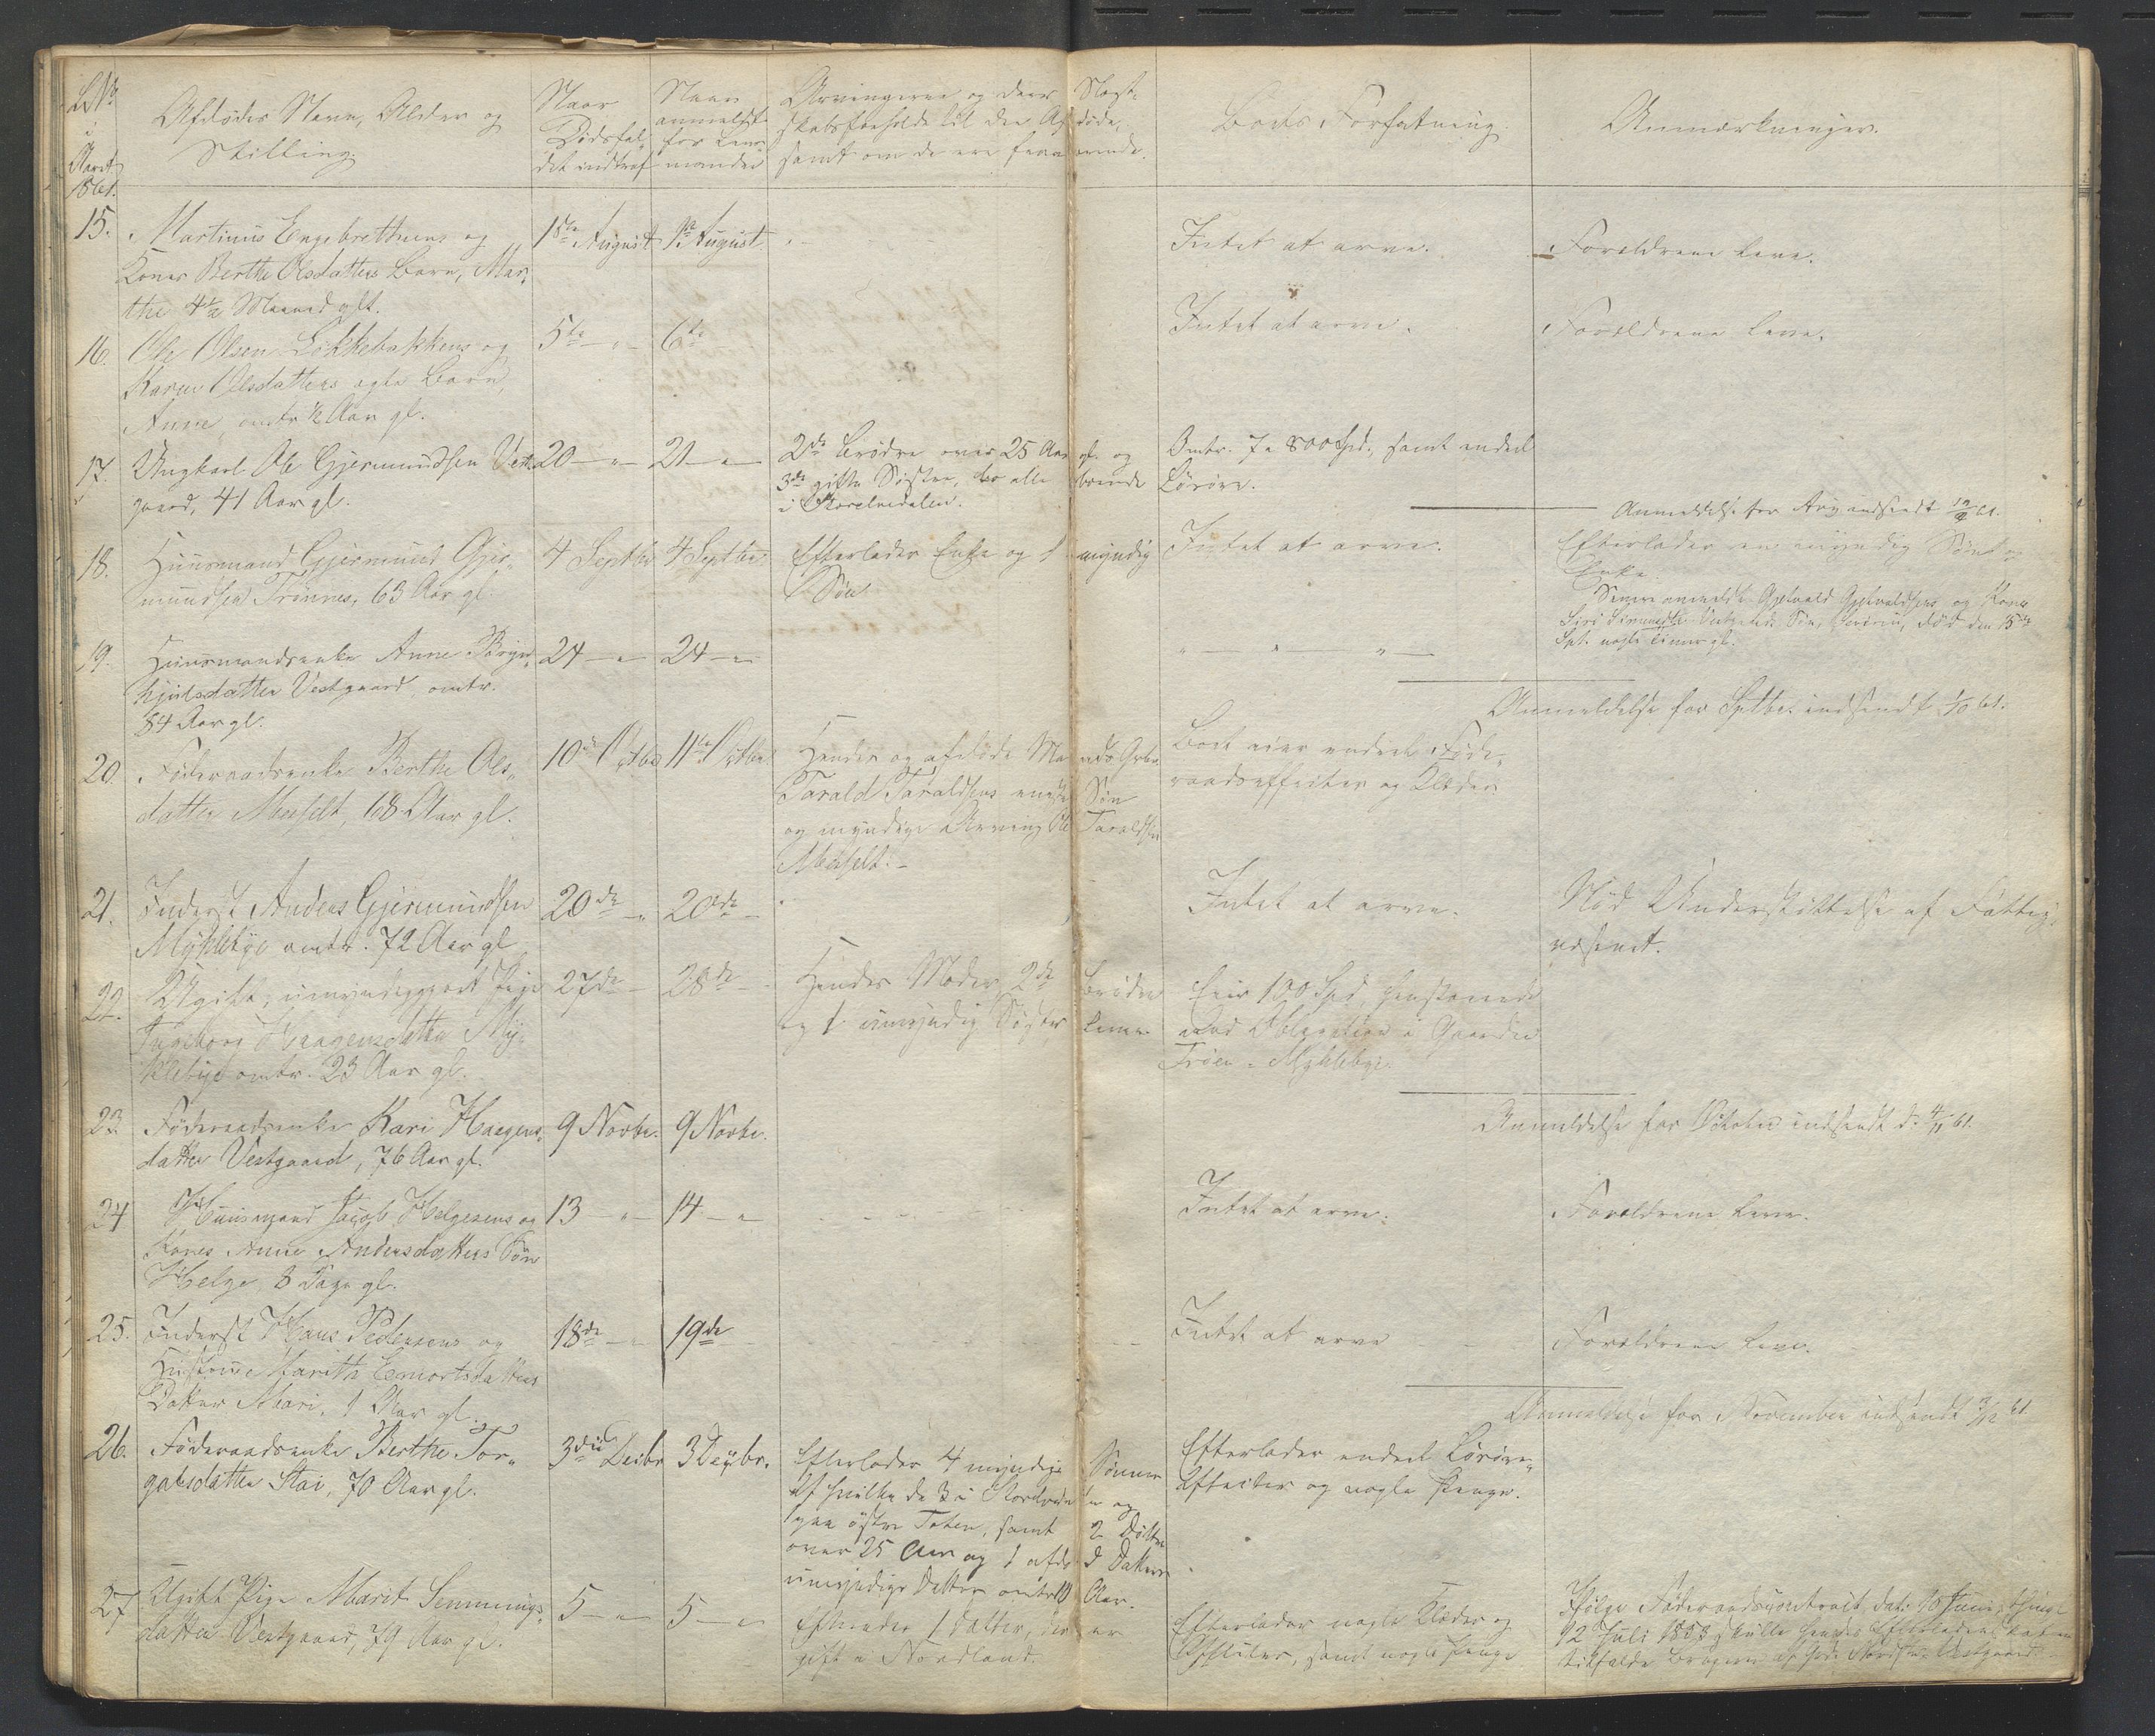 LNo
i
Aaret
1861.
Afdødes Navn, Alder og
Stilling.
Naar
Dødsfal-
det indtraf
Naar
anmeldt
for Lens-
manden
Arvingerne og deres Slægt-
skabsforhold til den Afdøde,
samt om de ere fraværende.
Boets Forfatning
Anmærkninger.
15.
Martinus Engebrethsens og
Kones Berthe Olsdatters Barn, Mar-
the 4½ Maaned glt.
1ste August
1ste August
Intet at arve.
Forældrene leve.
16.
Ole Olsen Løkkebakkens og
Karen Olsdatters ægte Barn,
Anne, omtr ½ Aar gl.
5te — " —
6te —
Intet at arve.
Forældrene leve.
17.
Ungkarl Ole Gjermundsen Vest-
gaard, 41 Aar gl.
20 — " —
21 — " —
2de Brødre over 25 Aar gl. og
3de gifte Søstre, bor alle boende
i Storelvedalen.
Omtr. 7 a 800 Spd., samt endeel
Løsøre.
Anmeldelse for Aug. indsendt 12/9 61.
18.
Huusmand Gjermund Gjer-
mundsen Trønnes, 63 Aar gl.
4 Septbr
4 Septbr.
Efterlader Enke og 1 myndig
Søn
Intet at arve.
Efterlader en myndig Søn og
Enke.
Senere anmeldt Gjetvald Gjetvaldsens og Kone
Siri Simensdtr Vestgaards Søn, død den 15de
Spt. nogle Timer gl.
19.
Huusmandsenke Anne Bryn-
hjulsdatter Vestgaard, omtr.
84 Aar gl.
24 — " —
24 — " —
" — " — " —
Anmeldelse for Septbr. indsendt 1/10 61.
20
Føderaadsenke Berthe Ols-
datter Messelt, 68 Aar gl.
10de Octbr
11te Octbr
Hendes og afdøde Mands Gbr.
Tarald Taraldsens eneste Søn
og myndige Arving Ole Taraldsen
Messelt. —
Boet eier endeel Føde-
raadseffecter og Klæder.
21.
Inderst Anders Gjermundsen
Myklebye omtr. 72 Aar gl
20de — "
20de —
Intet at arve.
Nød Understøttelse af Fattig-
væsenet.
22.
Ugift, umyndiggjort Pige
Ingeborg Haagensdatter My-
klebye omtr. 23 Aar gl.
27de —
28de —
Hendes Moder, 2de Brødre
og 1 umyndig Søster leve.
Eier 100 Spd, henstaaende
mod Obligation i Gaarden
Trøen - Myklebye.
Anmeldelse for October indsendt d. 4/11 61.
23
Føderaadsenke Kari Haagens-
datter Vestgaard, 76 Aar gl.
9 Novbr.
9 Novbr.
24
Huusmand Jacob Helgesens og
Kones Anne Andersdatters Søn
Helge, 8 Dage gl.
13 — " —
14 — "
Intet at arve.
Forældrene leve.
25.
Inderst Hans Pedersens og
Hustrue Marith Embretsdatters
Datter Mari, 1 Aar gl.
18de — "
19de
Intet at arve
Forældrene leve.
Anmeldelse for November indsendt 3/12 61
26.
Føderaadsenke Berthe Tor-
galsdatter Stai, 70 Aar gl.
3die Decbr
3 Decbr.
Efterlader 4 myndige Sønner
af hvilke de 3 i Storelvedalen og
1 paa østre Toten, samt 2 Døttre
over 25 Aar og 1 afdød Datters
umyndige Datter omtr 10 Aar.
Efterlader endeel Løsøre-
effecter og nogle Penge.
27
Ugift Pige Marit Semmings-
datter Vestgaard, 79 Aar gl.
5 — " —
5 — "
Efterlader 1 Datter, der er
gift i Nordland.
Efterlader nogle Klæder og
Effecter, samt nogle Penge
Ifølge Føderaadscontract, dat. 10 Juni, thingl
12 Juli 1858 skulle hendes Efterladenskaber
tilfalde Brugeren af Grd. Nordstu Vestgaard —